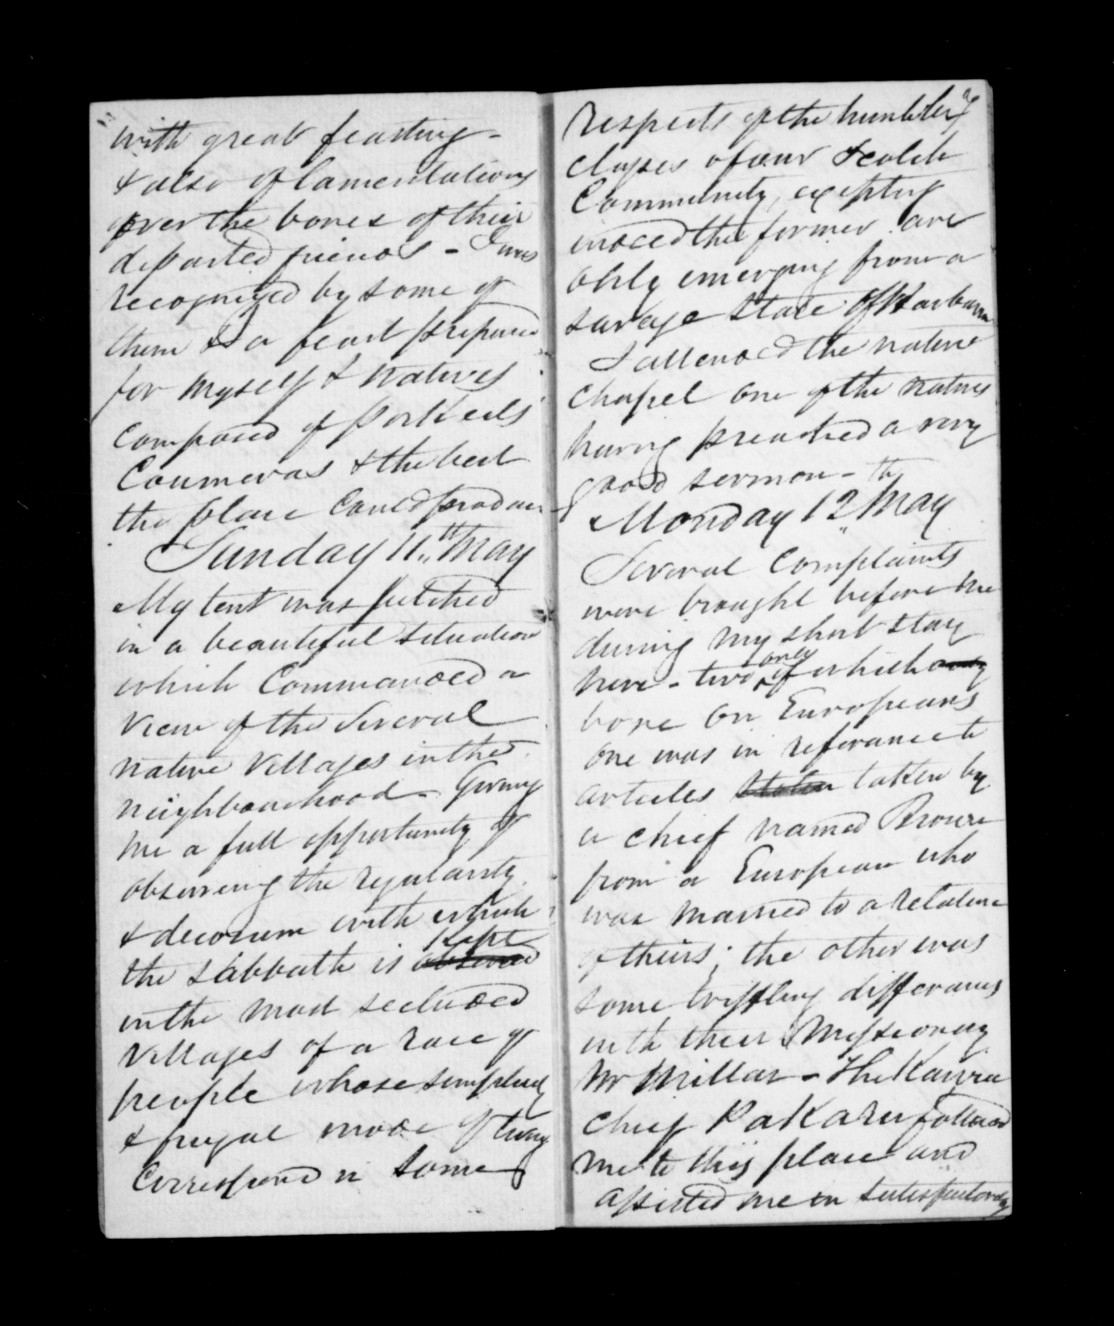 with great feasting -
& also of lamentations
over the bones of their
departed friends - I was
recognized by some of
them & a feast prepared
for myself & natives
composed of Pork eels
Coumeras & the best
the place could produce
Sunday 11th May
My tent was pitched
in a beautiful situation
which Commanded a
View of the Several
native Villages in the
neighbourhood - Giving
me a full opportunity of
observing the regularity
& decorum with which
kept
the sabbath is observed
in the most secluded
Villages of a race of
people whose simplicity
& frugal mode of living
Correspond in some
respects of the humbler
classes of our Scotch
Community, excepting
indeed the former are
only emerging from a
savage state of Barbarism
I attended the native
chapel one of the natives
having preached a very
good sermon -
Monday 12th May
Several Complaints
were brought before me
during my short stay
only
here - two of which only
bore on Europeans
one was in referance to
articles stolen taken by
a chief named Broure
from a European who
was married to a relative
of theirs; the other was
some triffling differances
with their Missionary
Mr Millar - The Kawia
Chief PaKaru followed
me to this place and
assisted me in satisfactorily